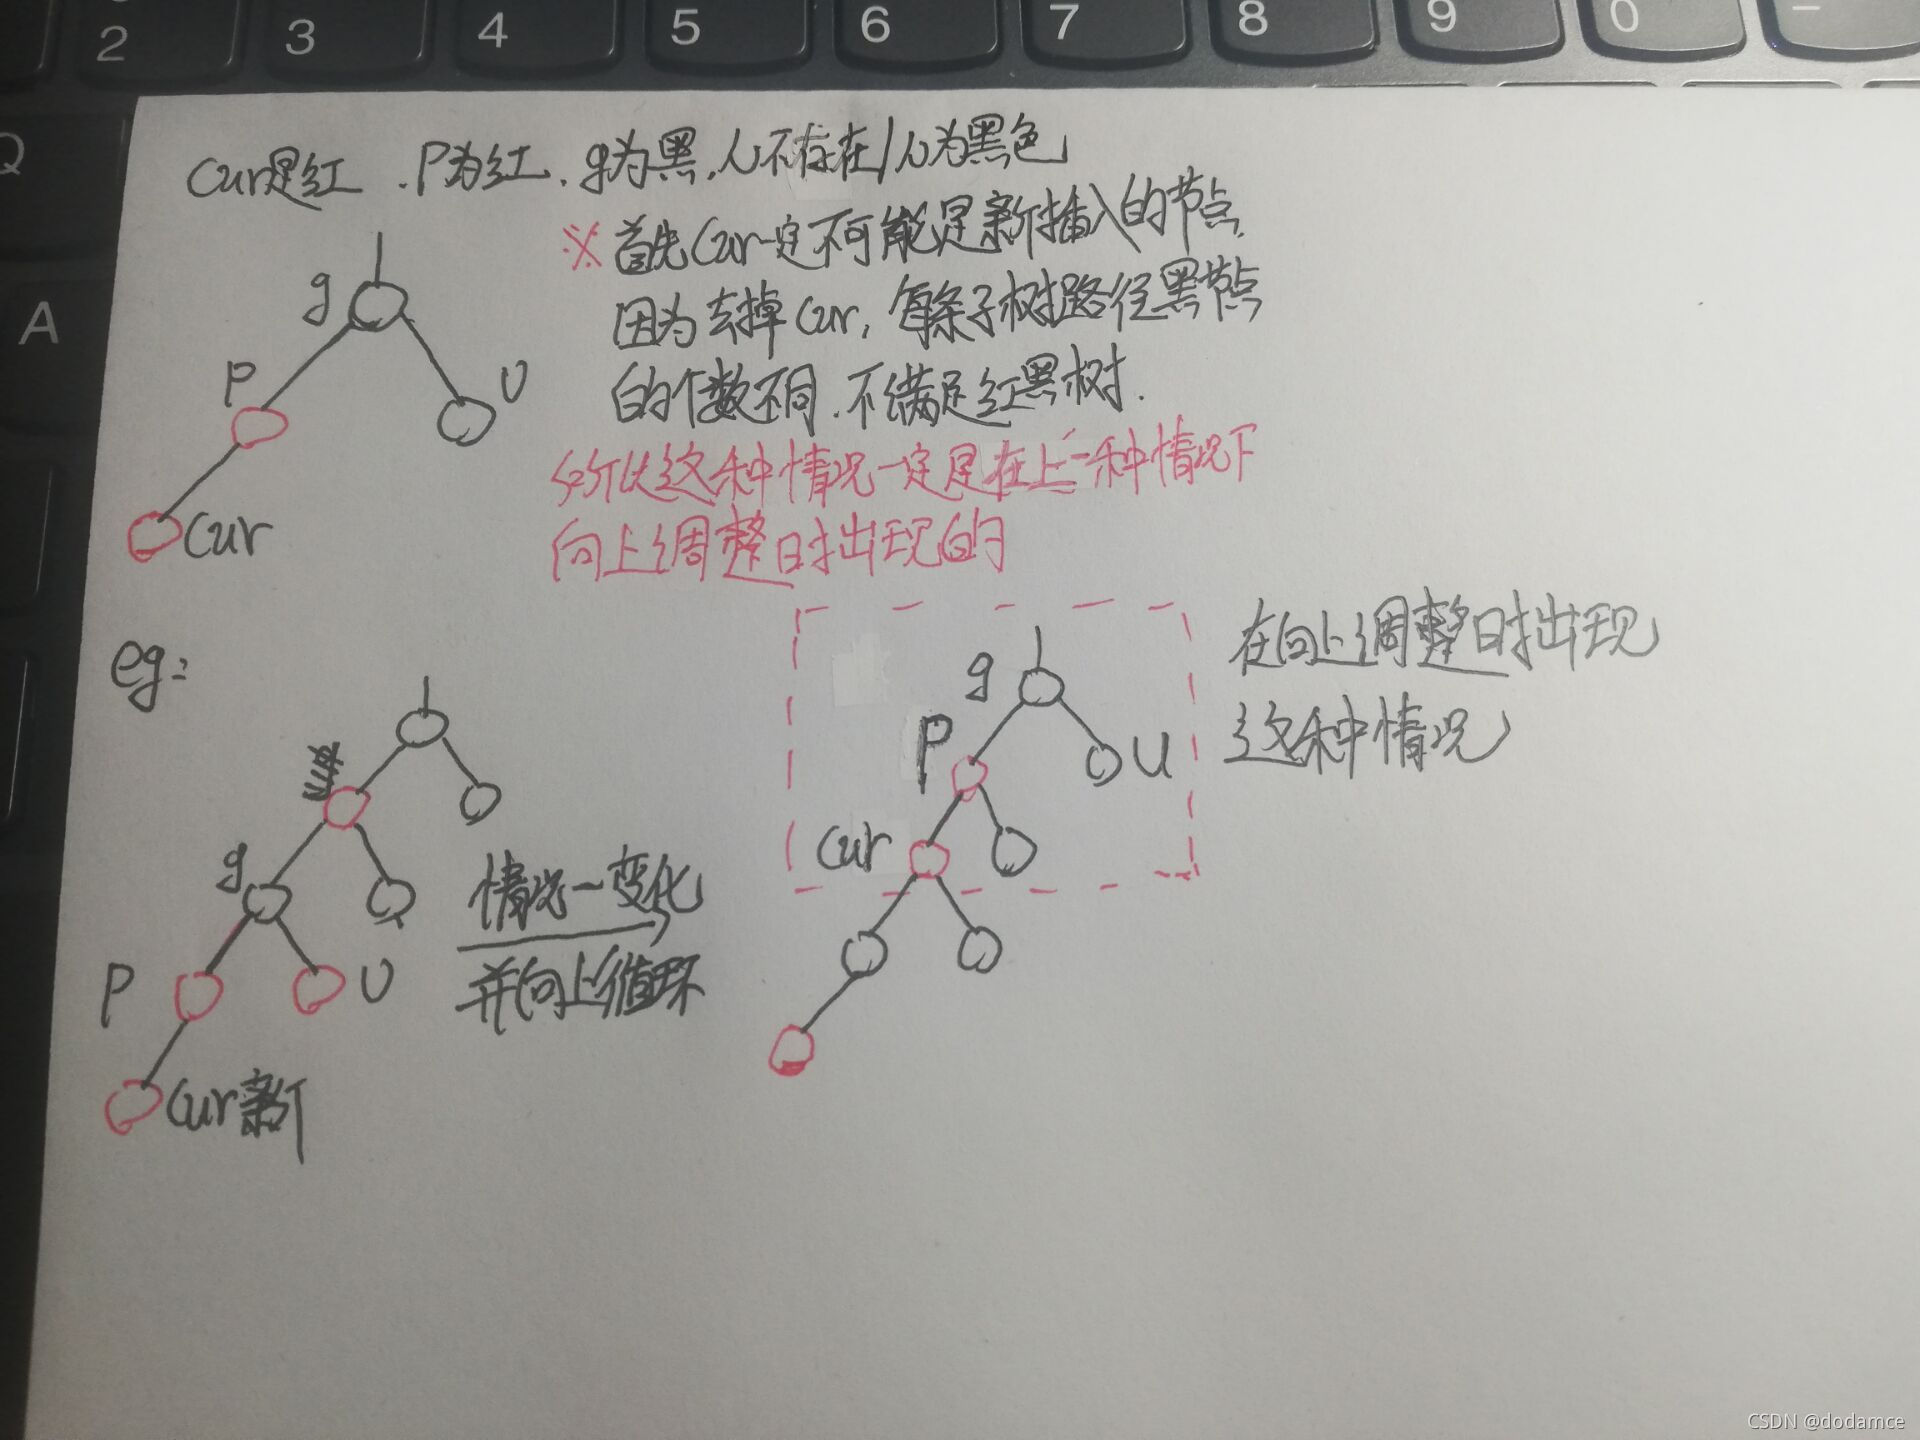 2 3 4 5 6 7 8 9 0 -
Q
A
cur是红.P为红.g为黑.u不存在/u为黑色
※首先cur一定不可能是新插入的节点.
因为去掉cur,每条子树路径黑节点
的个数不同.不满足红黑树.
所以这种情况一定是在上一种情况下
向上调整时出现的
g
P
U
cur
eg:
g
P
U
cur新
情况一变化
并向上循环
g
P
U
cur
在向上调整时出现
这种情况
CSDN @dodamce